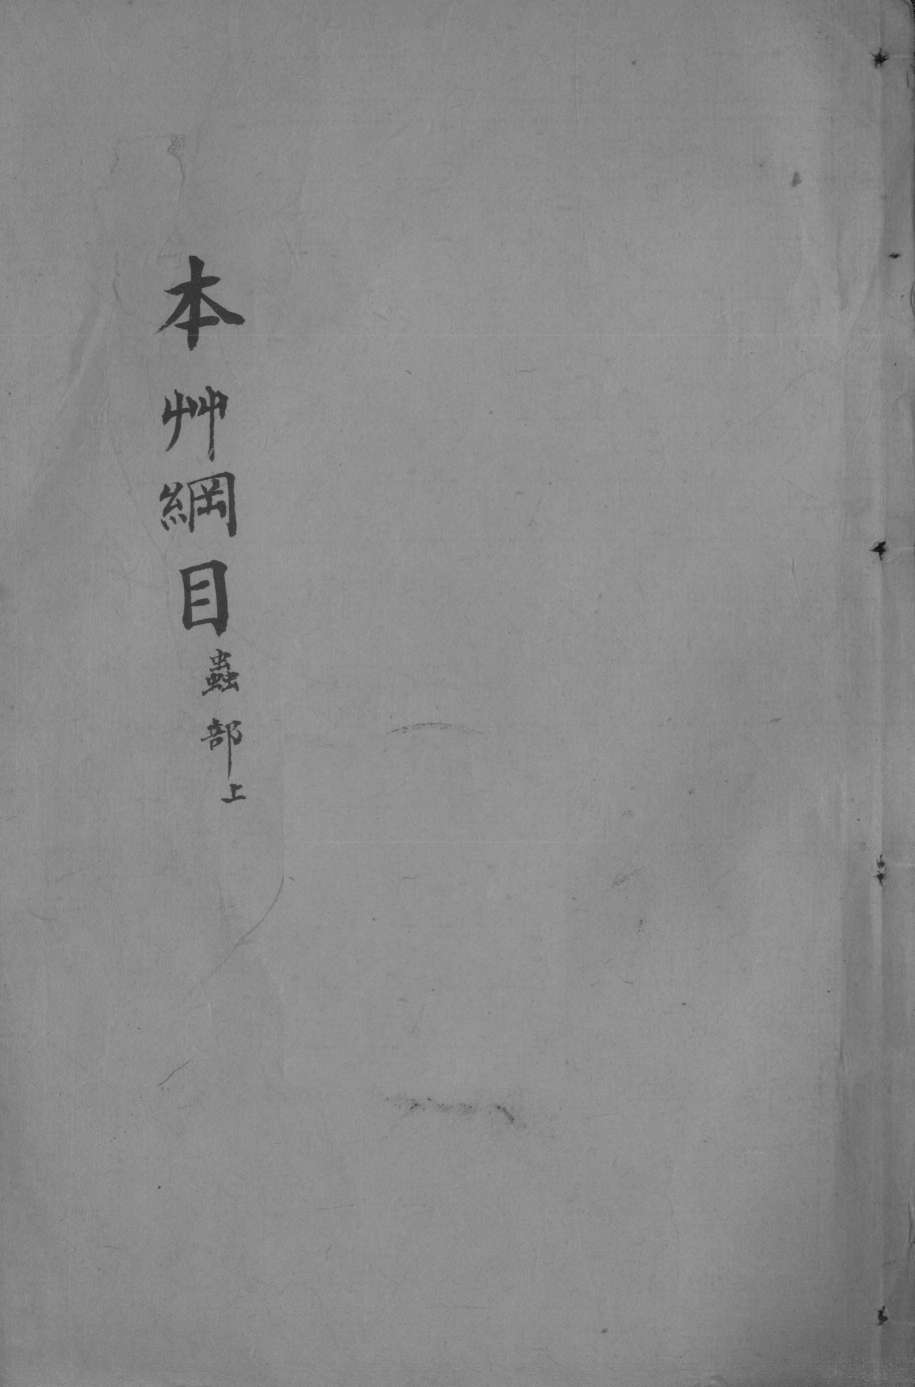 本艸綱目蟲部上